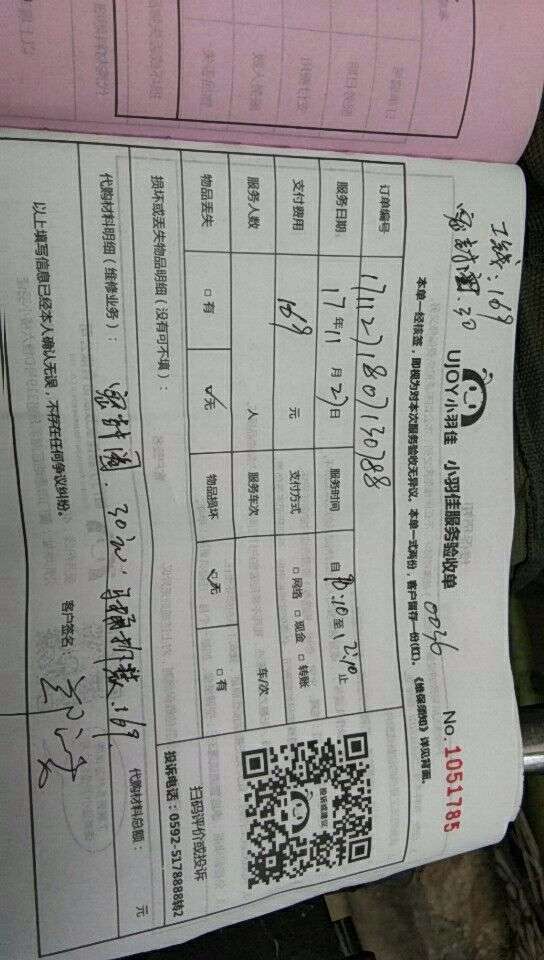 工钱:169
密封圈.30
UJOY小羽佳 小羽佳服务验收单 0036 No.1051785
本单一经核签，即视为对本次服务验收无异议。本单一式两份，客户留存一份(红)。《维保须知》详见背面。
订单编号 1711271807130788
服务日期: 17年11月27日 服务时间 自 10:10至12:10止
支付费用 169 元 支付方式 □网络 □现金 □转账
服务人数 人 服务车次 车/次
物品丢失 □有 ☑无 物品损坏 ☑无 □有
扫码评价或投诉
投诉电话：0592-5178888转2
损坏或丢失物品明细（没有可不填）：
代购材料明细（维修业务）： 密封圈.30元. 169 代购材料总额： 元
以上填写信息已经本人确认无误，不存在任何争议纠纷。 客户签名：